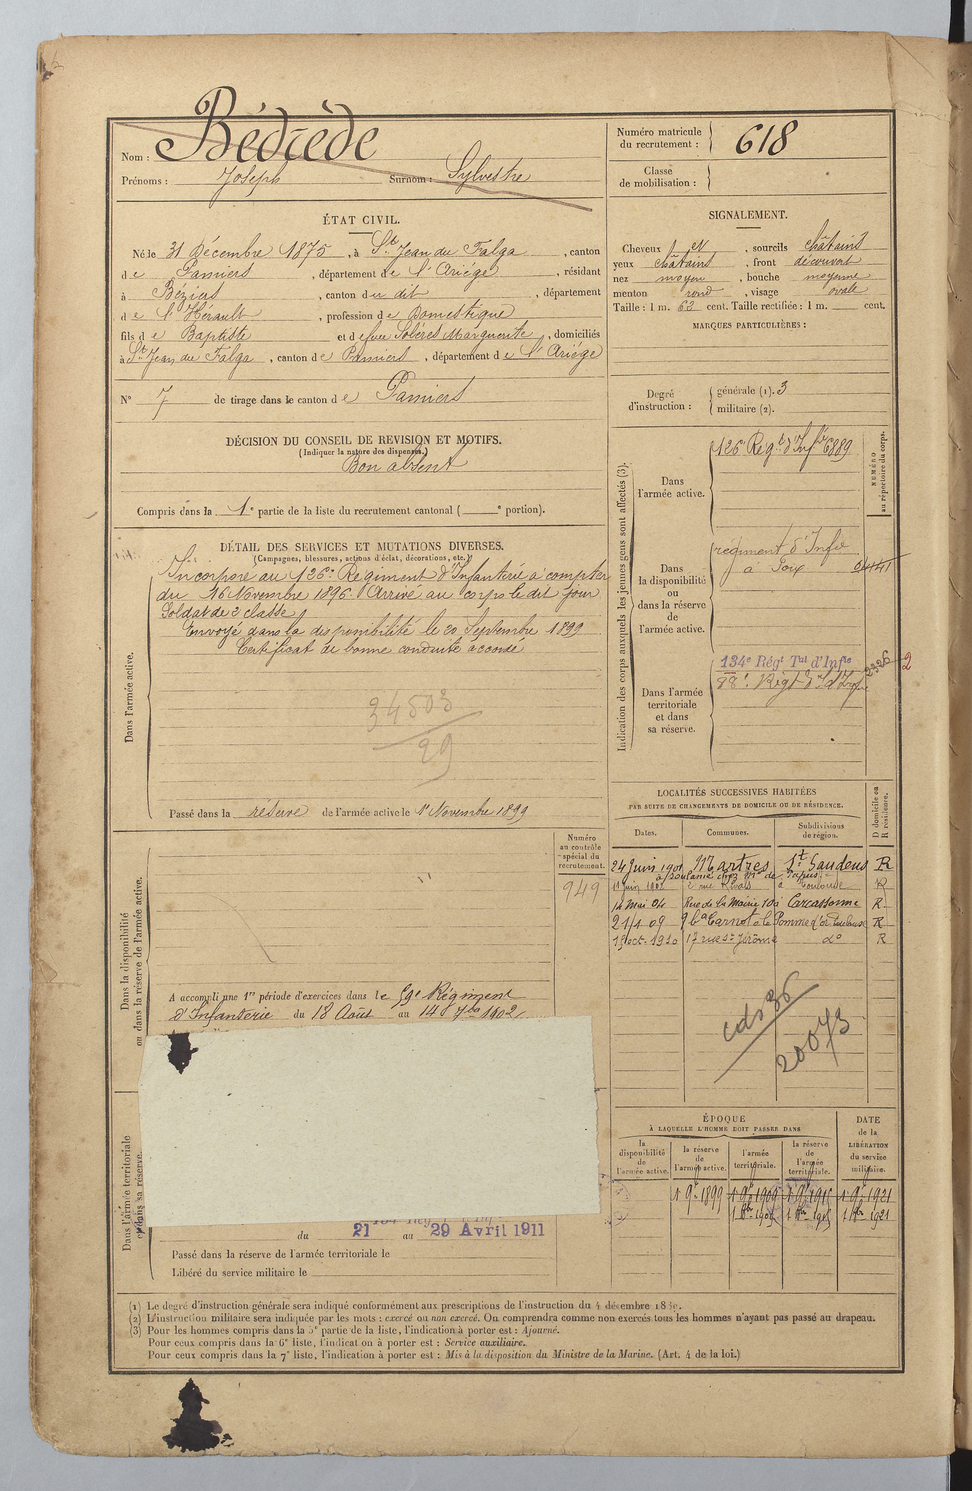 Nom : Bédrède
Prénoms : Joseph Surnom : Sylvestre
Numéro matricule du recrutement : 618
Classe de mobilisation :
ÉTAT CIVIL.
Né le 31 Décembre 1875, à St Jean du Falga, canton
de Pamiers, département de l'Ariége, résidant
à Béziers, canton du dit, département
de l'Hérault, profession de Domestique
fils de Baptiste et de feu Solères Marguerite, domiciliés
à St Jean du Falga, canton de Pamiers, département de l'Ariége
N° 7 de tirage dans le canton de Pamiers
DÉCISION DU CONSEIL DE REVISION ET MOTIFS.
(Indiquer la nature des dispenses.)
Bon absent
Compris dans la 1e partie de la liste du recrutement cantonal ( e portion).
DÉTAIL DES SERVICES ET MUTATIONS DIVERSES.
(Campagnes, blessures, actions d'éclat, décorations, etc.)
Dans l'armée active.
Incorporé au 126e Régiment d'Infanterie à compter
du 16 Novembre 1896. Arrivé au corps le dit jour
Soldat de 2 classe
Envoyé dans la disponibilité le 20 Septembre 1899
Certificat de bonne conduite accordé
34503
29
Passé dans la réserve de l'armée active le 1er Novembre 1899
Dans la disponibilité
ou dans la réserve de l'armée active.
Numéro
au contrôle
spécial du
recrutement.
949
A accompli une 1re période d'exercices dans le 59e Régiment
d'Infanterie du 18 Août au 14 7bre 1902
Dans l'armée territoriale
et dans sa réserve.
du 21 au 29 Avril 1911
Passé dans la réserve de l'armée territoriale le
Libéré du service militaire le
SIGNALEMENT.
Cheveux et, sourcils châtains
yeux châtains, front découvert
nez moyen, bouche moyenne
menton rond, visage ovale
Taille : 1 m. 62 cent. Taille rectifiée : 1 m. cent.
MARQUES PARTICULIÈRES :
Degré d'instruction : générale (1). 3
militaire (2).
Indication des corps auxquels les jeunes gens sont affectés (3).
NUMÉRO
au répertoire du corps.
Dans
l'armée active.
126e Régt d'Infie 6889
Dans
la disponibilité
ou
dans la réserve
de
l'armée active.
régiment d'Infie
à Foix
Dans l'armée
territoriale
et dans
sa réserve.
134e Régt Tal d'Infie
2326
2
LOCALITÉS SUCCESSIVES HABITÉES
PAR SUITE DE CHANGEMENTS DE DOMICILE OU DE RÉSIDENCE.
D domicile ou
R résidence.
Dates. Communes. Subdivisions de région.
24 Juin 1901 Martres St Gaudens R
11 Juin 1902 2 rue Rivals à Toulouse R
14 Mai 04 Rue de la Mairie 10 à Carcassonne R
21/1 09 9 bd Carnot à la Pomme d'or Toulouse R
15 oct. 1910 17 rue St Jérôme do R
20073
ÉPOQUE
À LAQUELLE L'HOMME DOIT PASSER DANS
DATE
de la
LIBÉRATION
du service
militaire.
la disponibilité de l'armée active. la réserve de l'armée active. l'armée territoriale. la réserve de l'armée territoriale.
1 9bre 1899 1 9bre 1909 1 9bre 1915 1 9bre 1921
(1) Le degré d'instruction générale sera indiqué conformément aux prescriptions de l'instruction du 4 décembre 1889.
(2) L'instruction militaire sera indiquée par les mots : exercé ou non exercé. On comprendra comme non exercés tous les hommes n'ayant pas passé au drapeau.
(3) Pour les hommes compris dans la 5e partie de la liste, l'indication à porter est : Ajourné.
Pour ceux compris dans la 6e liste, l'indication à porter est : Service auxiliaire.
Pour ceux compris dans la 7e liste, l'indication à porter est : Mis à la disposition du Ministre de la Marine. (Art. 4 de la loi.)